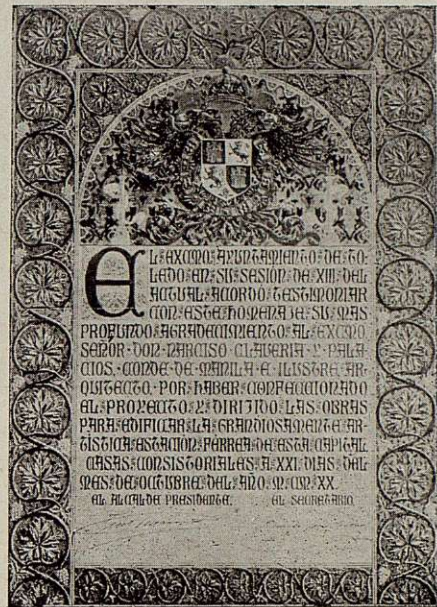 EL EXCMO. AYUNTAMIENTO DE TO
LEDO EN SU SESION DE XIII DEL
ACTUAL ACORDO TESTIMONIAR
CON ESTE HOMENAJE SU MAS
PROFUNDO AGRADECIMIENTO AL EXCMO
SEÑOR DON NARCISO CLAVERIA Y PALA
CIOS, CONDE DE MANILA E ILUSTRE AR
QUITECTO, POR HABER CONFECCIONADO
EL PROYECTO Y DIRIJIDO LAS OBRAS
PARA EDIFICAR LA GRANDIOSAMENTE AR
TISTICA ESTACION FERREA DE ESTA CAPITAL
CASAS CONSISTORIALES A XXI DIAS DEL
MES DE OCTUBRE DEL AÑO M CM XX.
EL ALCALDE PRESIDENTE, EL SECRETARIO